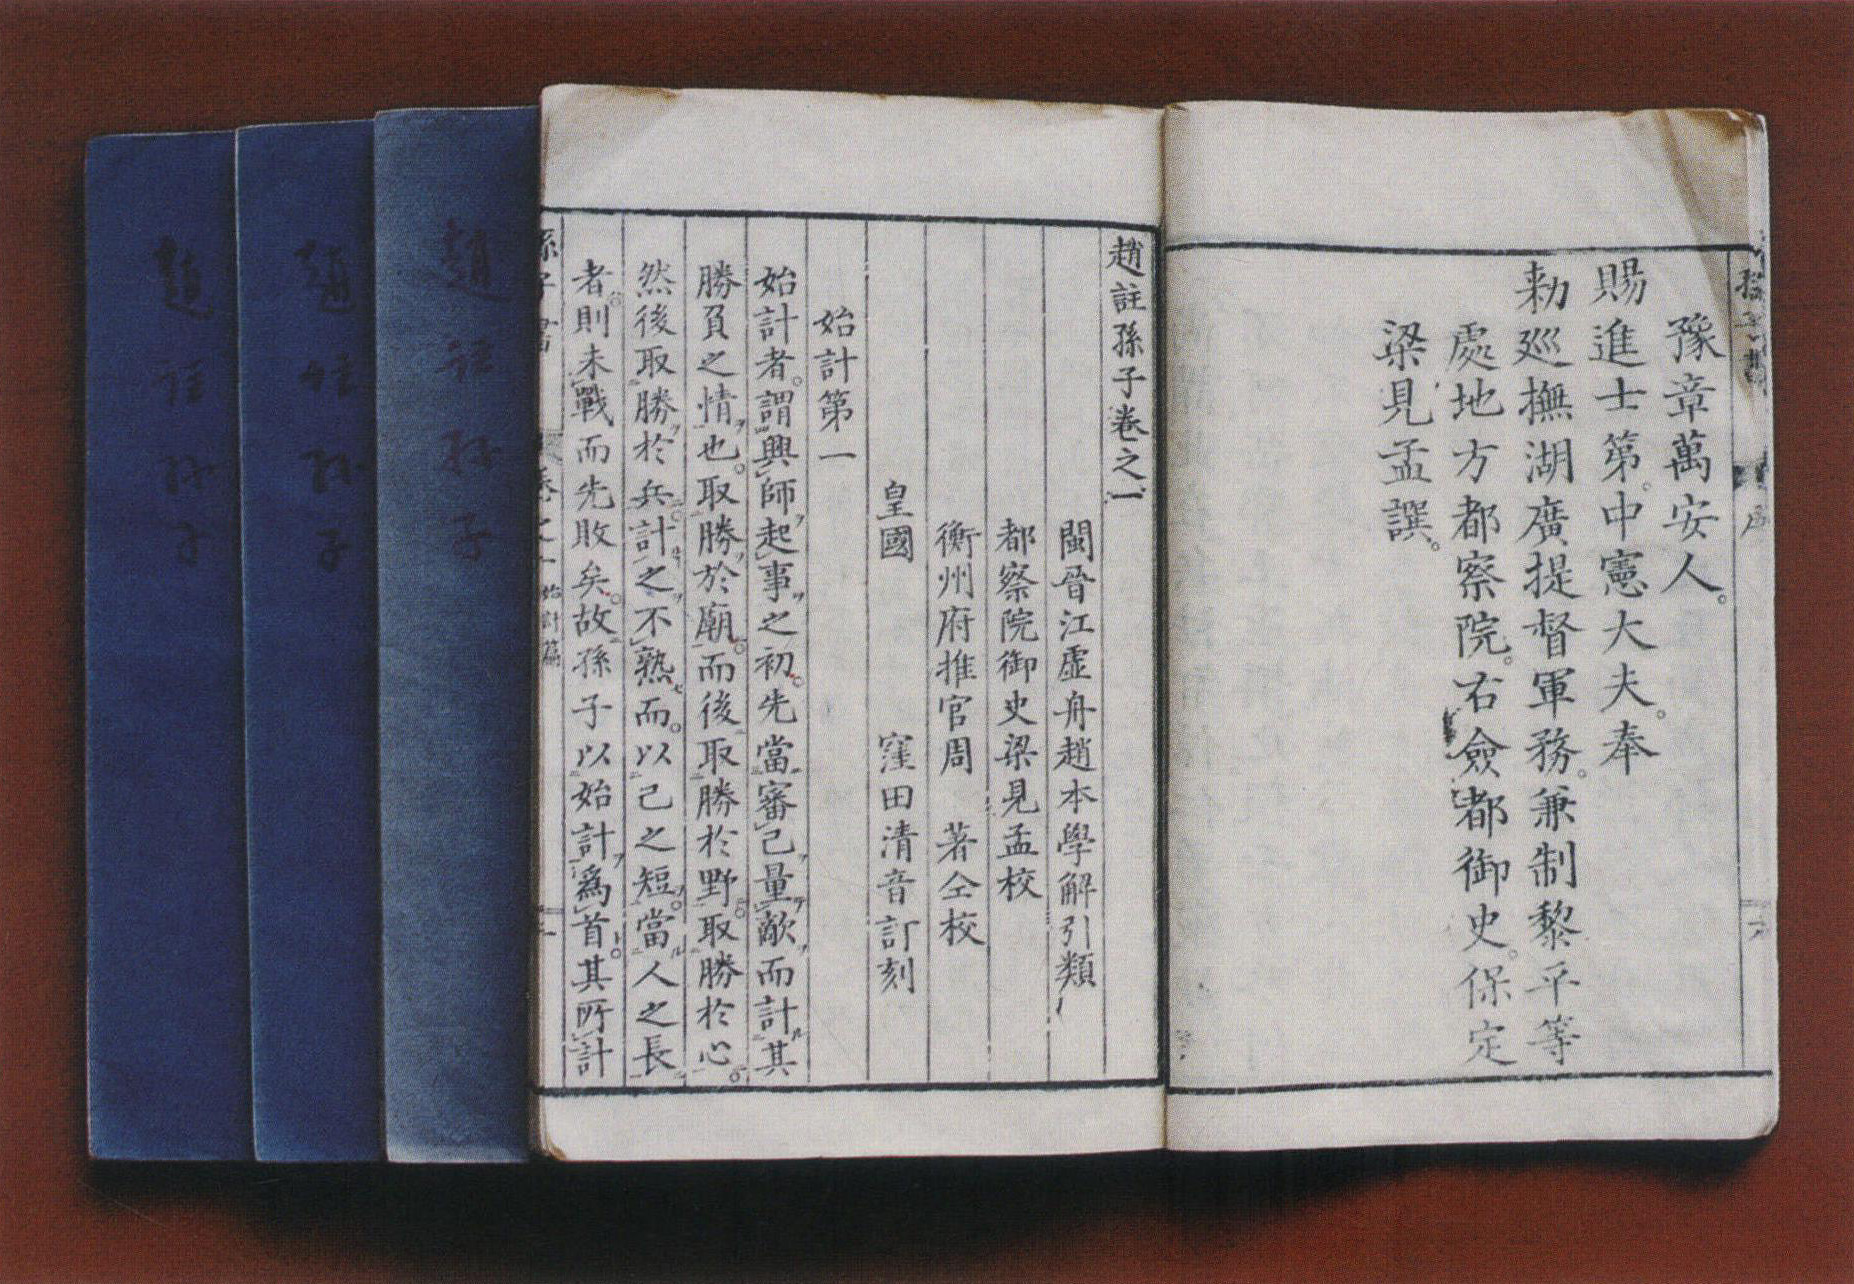 豫章萬安人。
賜進士第。中憲大夫。奉
勑巡撫湖廣提督軍務。兼制黎平等
處地方都察院。右僉都御史。保定
梁見孟譔。
趙註孫子卷之一
閩晉江虛舟趙本學解引類
都察院御史梁見孟校
衡州府推官周 著仝校
皇國 窪田清音訂刻
始計第一
始計者。謂興師起事之初。先當審己量敵而計其
勝負之情也。取勝於廟。而後取勝於野。取勝於心。
然後取勝於兵。計之不熟而。以己之短。當人之長
者。則未戰而先敗矣。故孫子以始計爲首。其所計
孫子書 卷之一 始計篇
趙註孫子
趙註孫子
趙註孫子